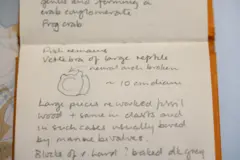 genus and forming a
crab conglomerate
Prog crab
Fish remains
Vertebra of large reptile
by neural arch broken
~ 10 cm diam
Large pieces reworked fossil
wood + some in clasts and
in such cases usually bored
by marine bivalves.
Blocks of v. hard ? baked dk grey